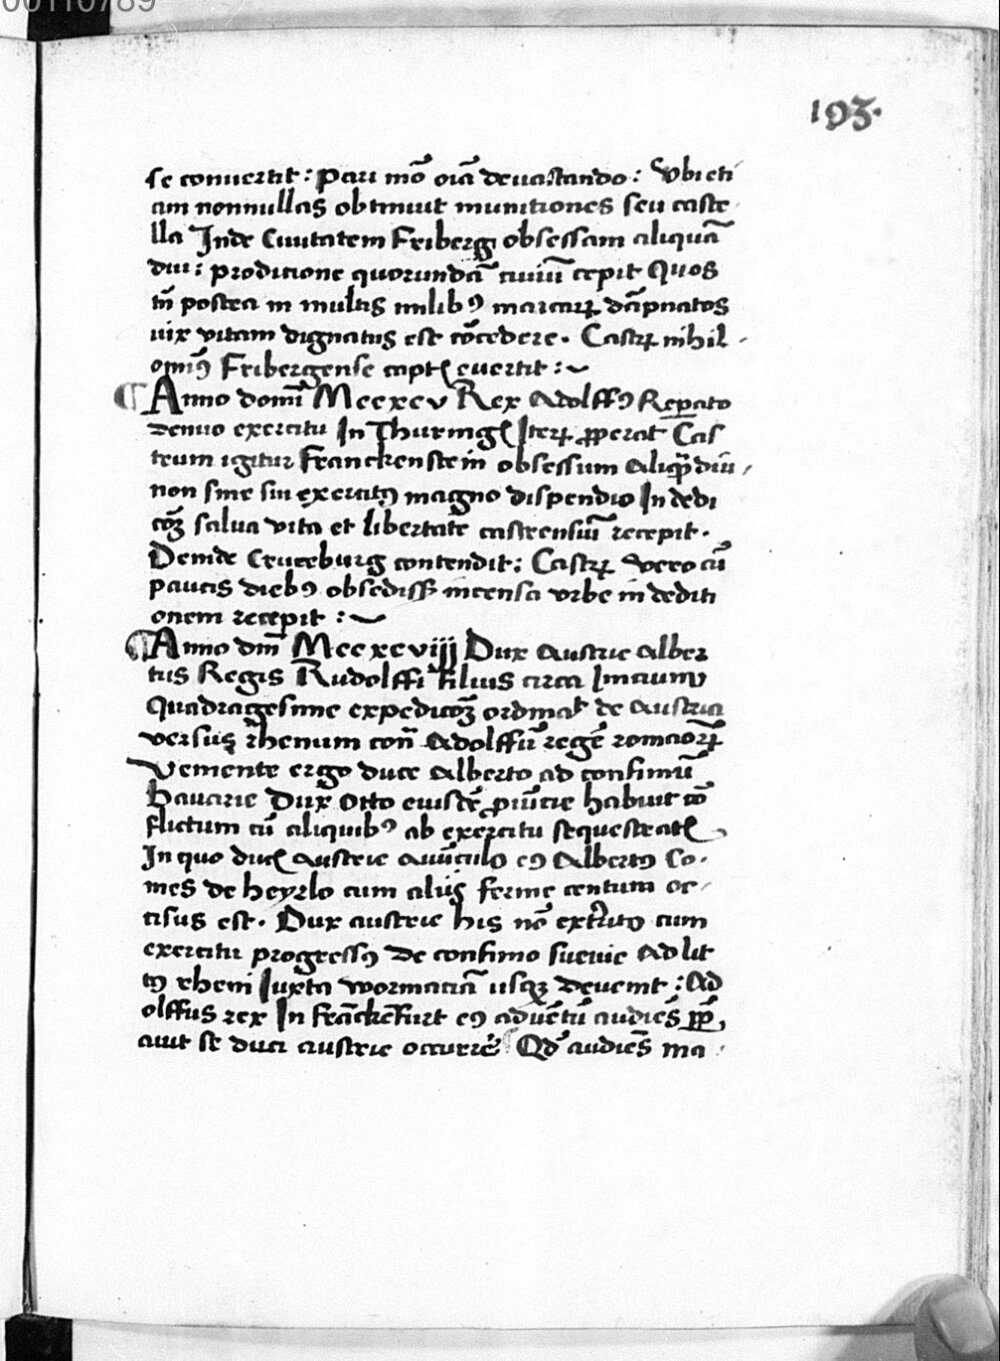 00110789
193.
se conuertit : pari mō oīa deuastando : Vbi eti
am nonnullas obtinuit munitiones seu caste
lla Inde Ciuitatem Friberg obsessam aliquā
diu : proditione quorundā ciuiū cepit Quos
tñ postea in multis milibꝯ marcaꝝ dāpnatos
uix vitam dignatus est cōcedere . Castꝝ nihil
omiꝯ Fribergense capt evertit :~
¶ Anno domī Mccxcv Rex Adolffꝯ Reꝑato
denuo exercitu In Thuring Iteꝝ ꝓperat Cas
trum igitur Franckenstein obsessum aliqdiu
non sine sui exercitꝯ magno dispendio In dedi
cōꝫ salua vita et libertate castrensiū recepit .
Deinde Cruceburg contendit : Castꝝ vero cū
paucis diebꝯ obsediss incensa vrbe in dediti
onem recepit :~
¶ Anno dm̄ Mccxcviij Dux Austrie Alber
tus Regis Rudolffi filius circa Inicium
Quadragesime expedicōꝫ ordinat de Austria
versus rhenum con̄ Adolffū regē romāoꝝ
Veniente ergo duce Alberto ad confiniū
Bauarie Dux Otto eiusdē ꝓuīcie habuit cō
flictum cū aliquibꝯ ab exercitu sequestrat
In quo duc Austrie auūculꝯ eꝯ Albertꝯ Co
mes de heyrlo cum alijs ferme centum oc
cisus est . Dux austrie his nō extritꝯ cum
exercitu progressꝯ de confinio sueuie Ad lit
tꝯ rheni Iuxta wormaciā usqꝫ deuenit : Ad
olffus rex In franckefurt eꝯ aduētū audiēs ꝓp
auit se duci austrie occurrē Qd audiēs ma